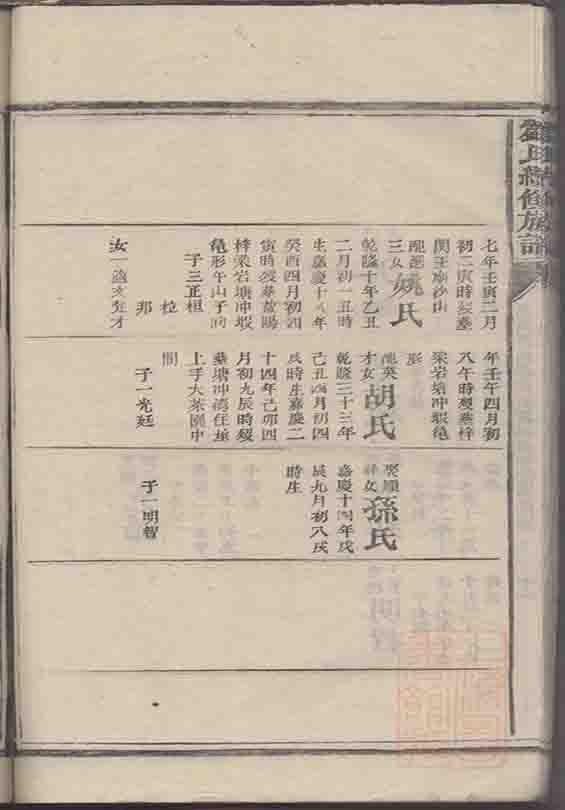 七年壬寅二月
初二寅時歿葬
関王廟沙山
配
三女姚氏
乾隆十年乙丑
二月初一丑時
生嘉慶十八年
癸酉四月初四
寅時歿葬益陽
梓梁岩塘冲嘏
亀形午山子向
子三正桓
柆
邦
女一適文
年壬午四月初
八午時歿葬梓
梁岩塘冲嘏亀
形
配英
才女胡氏
乾隆三十三年
己丑四月初四
戌時生嘉慶二
十四年己卯四
月初九辰時歿
葬塘冲湾
上手大茶園中
間
子一光廷
娶順
祥女孫氏
嘉慶十四年戊
辰九月初八戌
時生
子一明智
修族譜